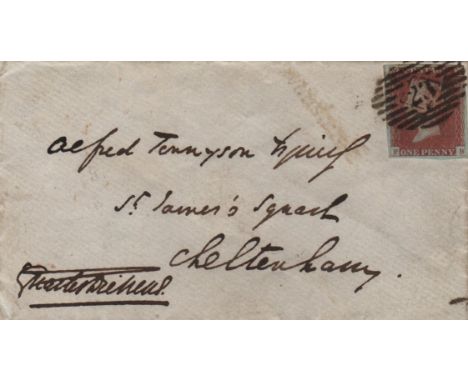 ONE PENNY
Alfred Tennyson Esquire
St James's Square
Cheltenham.
Charles Dickens.